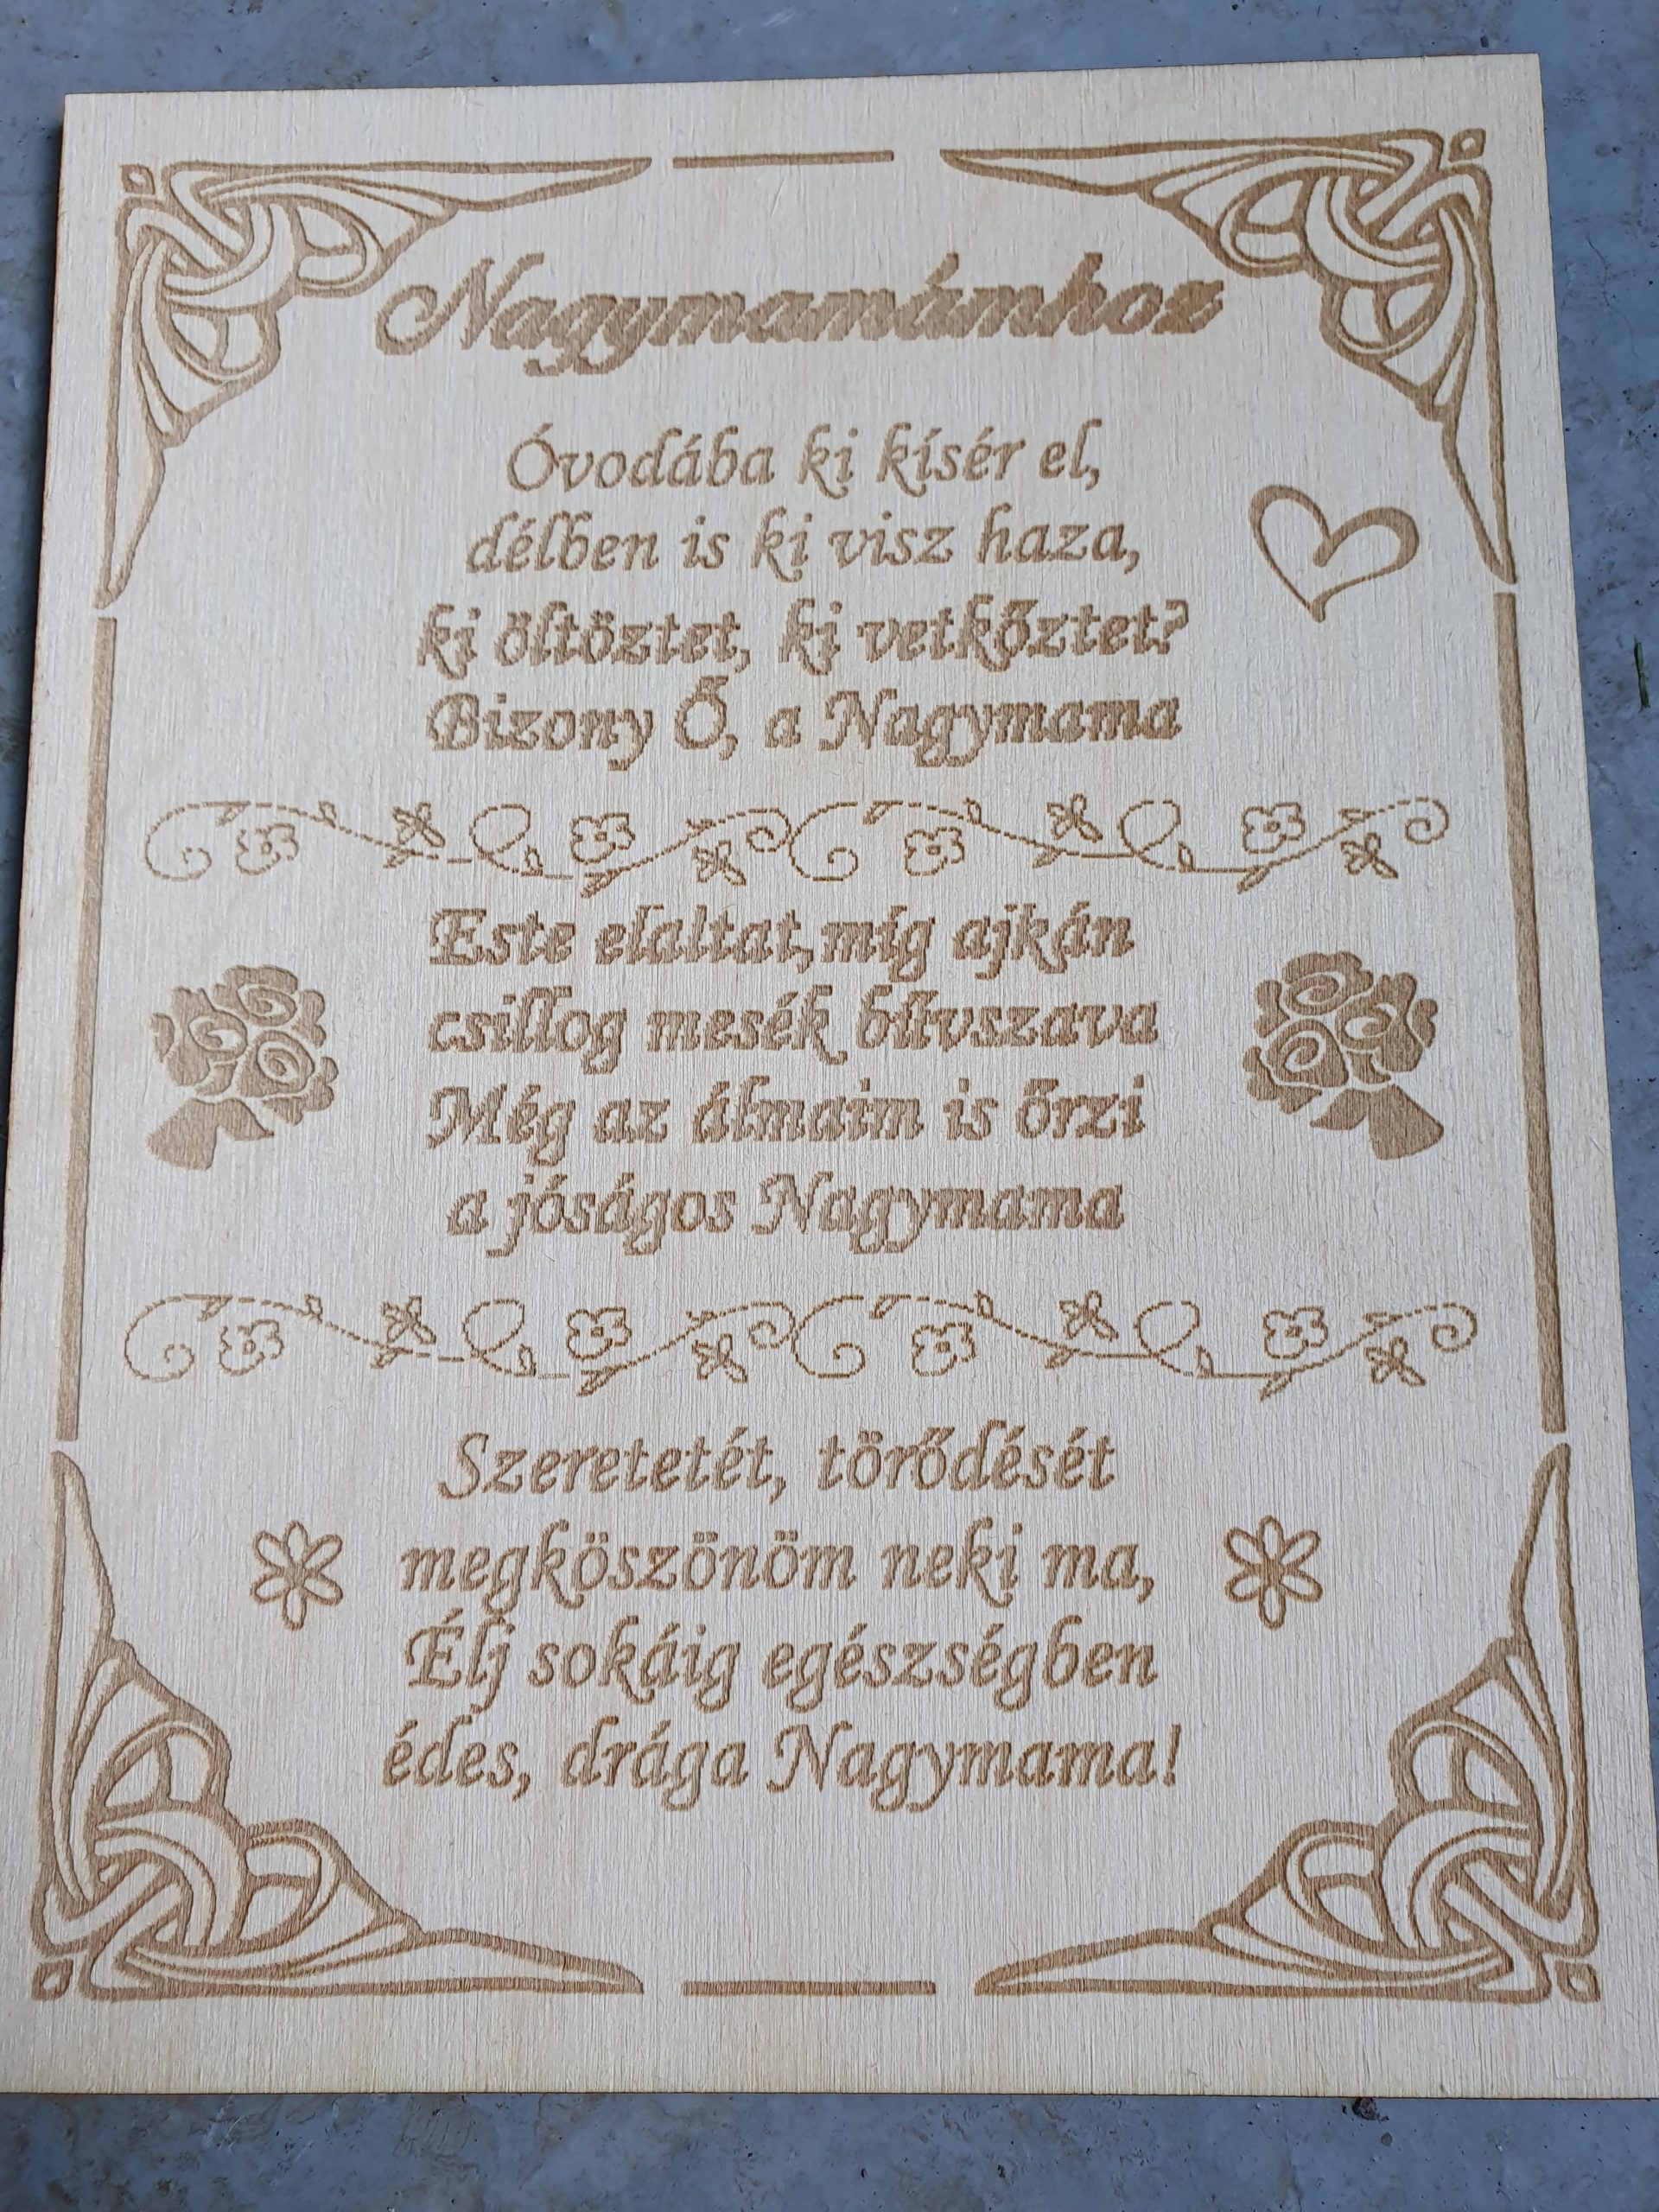 Nagymamámhoz
Óvodába ki kísér el,
délben is ki visz haza,
ki öltöztet, ki vetkőztet?
Bizony Ő, a Nagymama
Este elaltat,míg ajkán
csillog mesék bűvszava
Még az álmaim is őrzi
a jóságos Nagymama
Szeretetét, törődését
megköszönöm neki ma,
Élj sokáig egészségben
édes, drága Nagymama!